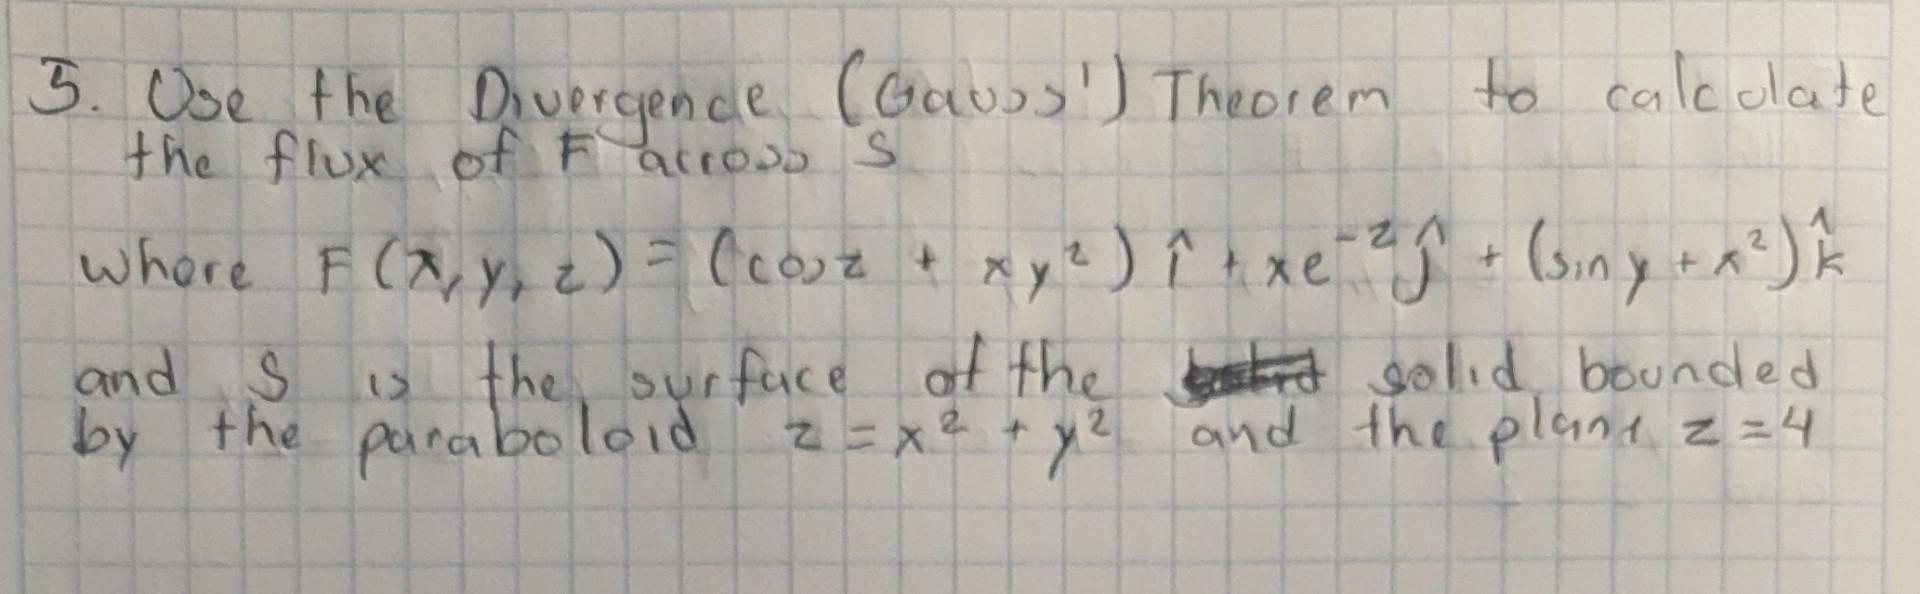 5. Use the Divergence (Gauss') Theorem to calculate
the flux of F across S
where F(x, y, z) = (cos z + xy²) î + xe⁻ᶻ ĵ + (sin y + x²) k̂
and S is the surface of the solid bounded
by the paraboloid z = x² + y² and the plane z = 4